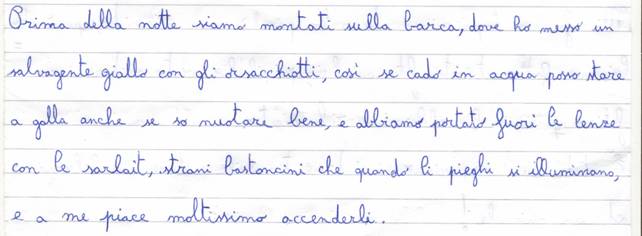 Prima della notte siamo montati sulla barca, dove ho messo un
salvagente giallo con gli orsacchiotti, così se cado in acqua posso stare
a galla anche se so nuotare bene, e abbiamo portato fuori le lenze
con le sarlait, strani bastoncini che quando li pieghi si illuminano,
e a me piace moltissimo accenderli.